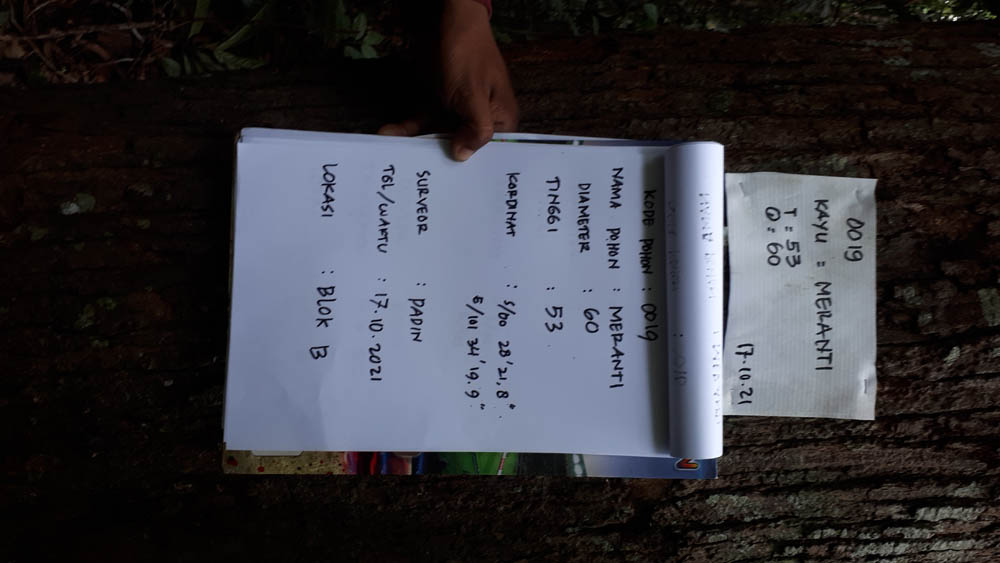 0019
KAYU = MERANTI
T = 53
Ø = 60
17.10.21
KODE POHON : 0019
NAMA POHON : MERANTI
DIAMETER : 60
TINGGI : 53
KORDINAT : S/00 28'21,8"
E/101 34'19.9"
SURVEOR : DADIN
TGL/WAKTU : 17.10.2021
LOKASI : BLOK B